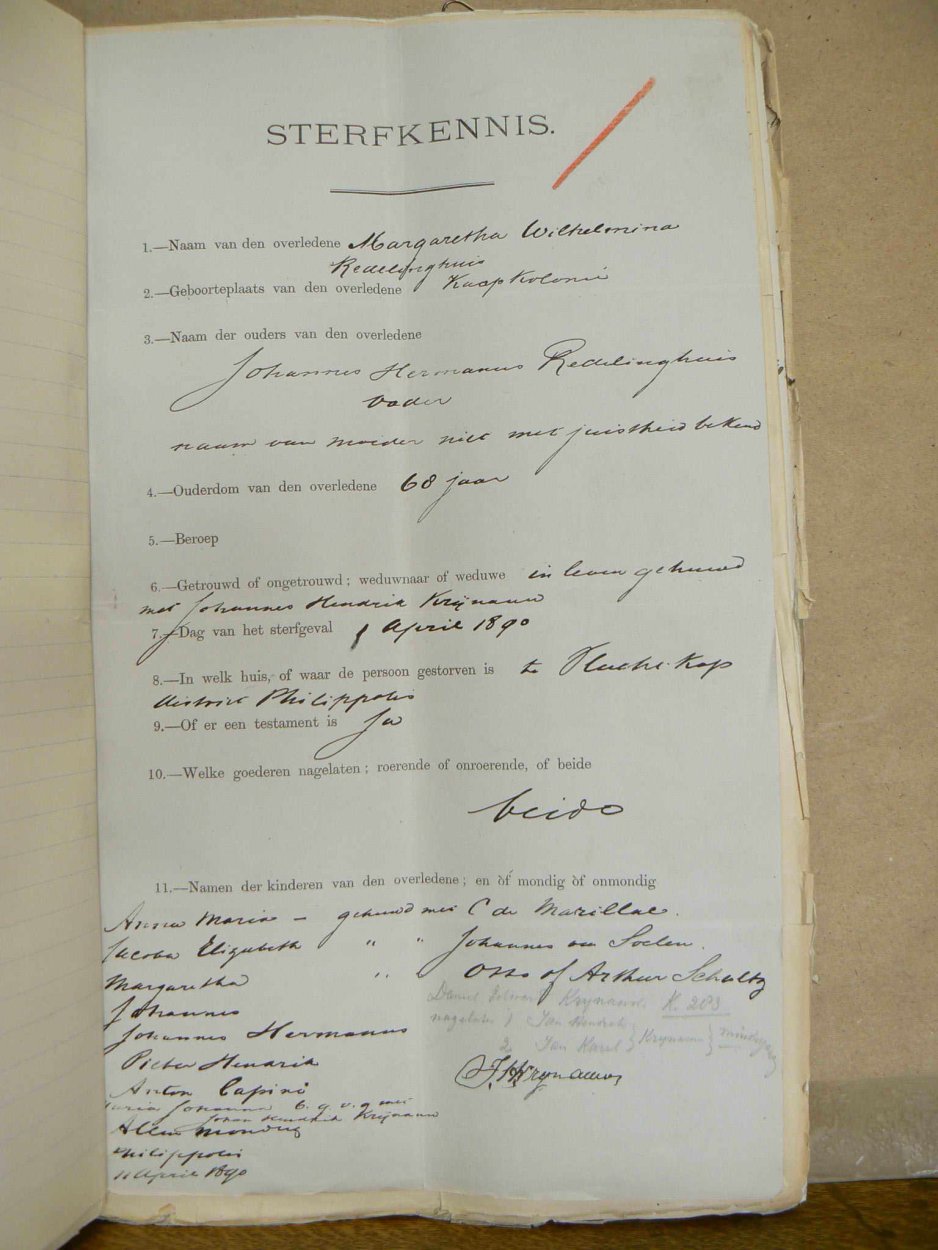 STERFKENNIS.
1.—Naam van den overledene Margaretha Wilhelmina
Redelinghuis
2.—Geboorteplaats van den overledene Kaap Kolonie
3.—Naam der ouders van den overledene
Johannes Hermanus Redelinghuis
vader
naam van moeder niet met juistheid bekend
4.—Ouderdom van den overledene 68 jaar
5.—Beroep
6.—Getrouwd of ongetrouwd; weduwnaar of weduwe in leven gehuwd
met Johannes Hendrik Krijnauw
7.—Dag van het sterfgeval 1 April 1890
8.—In welk huis, of waar de persoon gestorven is te Kop
district Philippolis
9.—Of er een testament is Ja
10.—Welke goederen nagelaten; roerende of onroerende, of beide
beide
11.—Namen der kinderen van den overledene; en òf mondig òf onmondig
Anna Maria — gehuwd met C de Marillac.
Jacoba Elizabeth " " Johannes van Soelen.
Margaretha " " Otto of Arthur Schultz
Daniel Krynauw K. 203
Johannes
nagelaten 1 Jan Hendrik
Johannes Hermanus
2 Jan Karel } Krynauw }
Pieter Hendrik
Krynauw
Anton Capini
Maria Johanna b. g. v. g met
Johan Hendrik Krijnauw
Allen mondig
Philippolis
11 April 1890